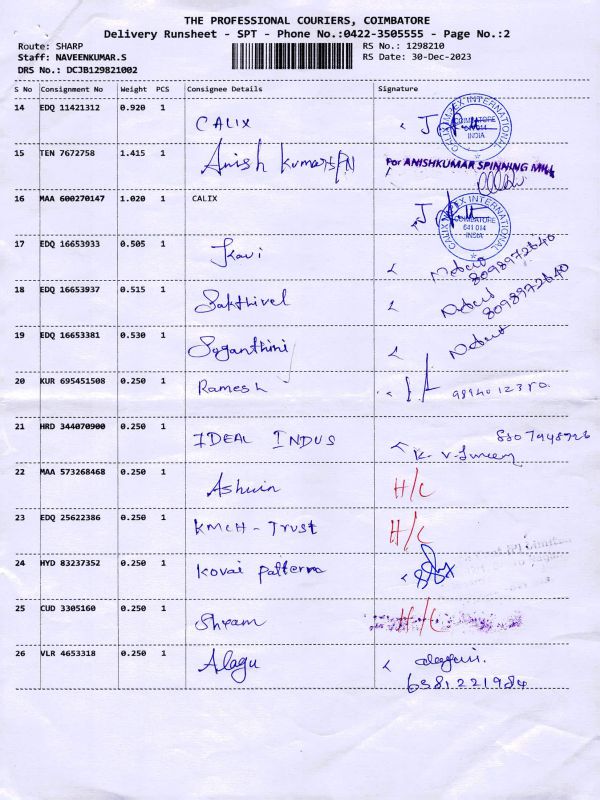 THE PROFESSIONAL COURIERS, COIMBATORE
Delivery Runsheet - SPT - Phone No.:0422-3505555 - Page No.:2
Route: SHARP RS No.: 1298210
Staff: NAVEENKUMAR.S RS Date: 30-Dec-2023
DRS No.: DCJB129821002
S No Consignment No Weight PCS Consignee Details Signature
14 EDQ 11421312 0.920 1 CALIX
CALIX IMPEX INTERNATIONAL COIMBATORE 641 014 INDIA
15 TEN 7672758 1.415 1 Anish Kumar SPN For ANISHKUMAR SPINNING MILL
16 MAA 600270147 1.020 1 CALIX
CALIX IMPEX INTERNATIONAL COIMBATORE 641 014 INDIA
17 EDQ 16653933 0.505 1 Kavi
8098972640
18 EDQ 16653937 0.515 1 Sakthivel
8098972640
19 EDQ 16653381 0.530 1 Soganthini
20 KUR 695451508 0.250 1 Ramesh
21 HRD 344070900 0.250 1 IDEAL INDUS
22 MAA 573268468 0.250 1 Ashwin H/C
23 EDQ 25622386 0.250 1 KMCH - Trust H/C
24 HYD 83237352 0.250 1 Kovai Pattern
25 CUD 3305160 0.250 1 Shyam H/C
26 VLR 4653318 0.250 1 Alagu
6381221984